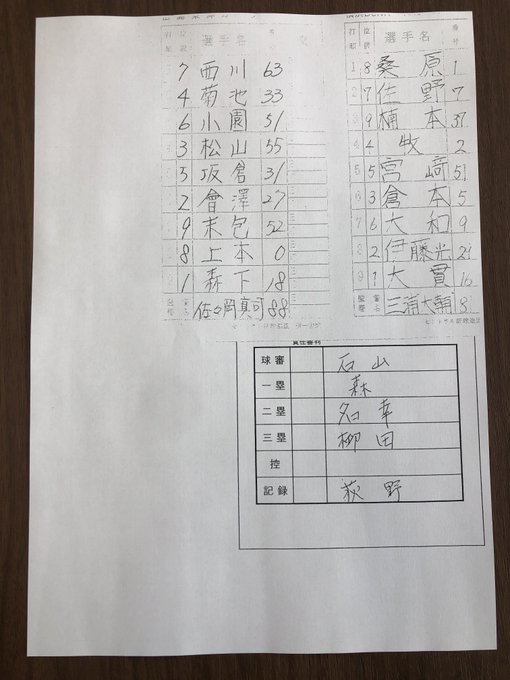 選手名
7 西川 63
4 菊池 33
6 小園 51
3 松山 55
坂倉 31
2 會澤 27
9 末包 52
8 上本 0
1 森下 18
佐々岡真司 88
選手名
1 8 桑原 1
2 7 佐野 7
3 9 楠本 37
4 4 牧 2
5 5 宮﨑 51
6 3 倉本 5
7 6 大和 9
8 2 伊藤光
9 1 大貫 16
三浦大輔
責任審判
球審 石山
一塁 森
二塁 名幸
三塁 柳田
控
記録 荻野